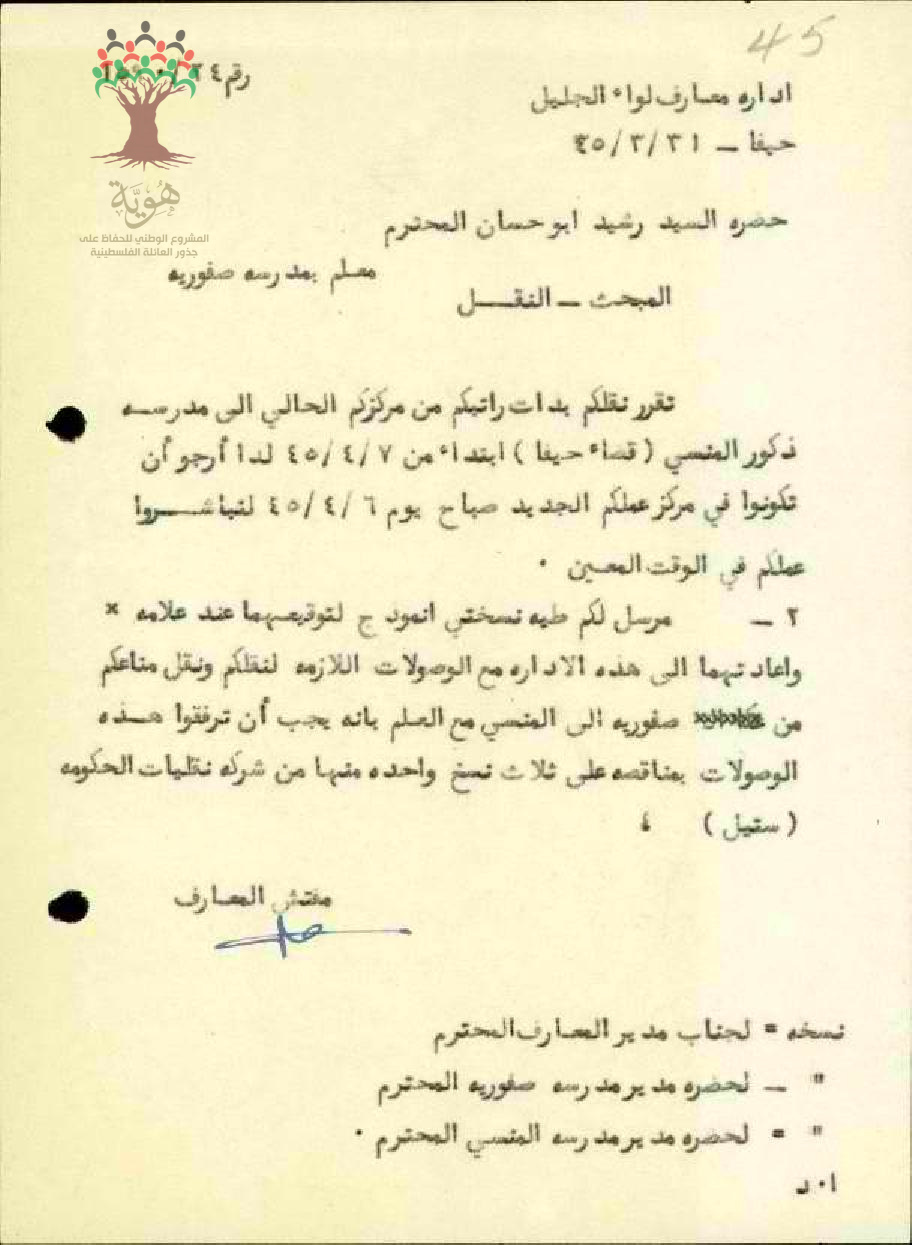 45
رقم ٢٤/
اداره معارف لواء الجليل
حيفا – ٣١/٣/٤٥
هُوِيَّة
المشروع الوطني للحفاظ على
جذور العائلة الفلسطينية
حضره السيد رشيد ابو حسان المحترم
معلم بمدرسه صفوريه
المبحث – النقــل
تقرر نقلكم بذات راتبكم من مركزكم الحالي الى مدرســه
ذكور المنسي ( قضاء حيفا ) ابتداء من ٤٥/٤/٧ لذا أرجو أن
تكونوا في مركز عملكم الجديد صباح يوم ٤٥/٤/٦ لتباشــروا
عملكم في الوقت المعين ٠
٢ – مرسل لكم طيه نسختي انموذج لتوقيعهما عند علامه ×
واعادتهما الى هذه الاداره مع الوصولات اللازمه لنقلكم ونقل متاعكم
من صفوريه الى المنسي مع العلم بانه يجب أن ترفقوا هــذه
الوصولات بمناقصه على ثلاث نسخ واحده منها من شركه نقليات الحكومه
( ستيل ) ٤
مفتش المعارف
نسخه = لجناب مدير المعارف المحترم
" – لحضره مدير مدرسه صفوريه المحترم
" = لحضره مدير مدرسه المنسي المحترم ٠
ا٠د